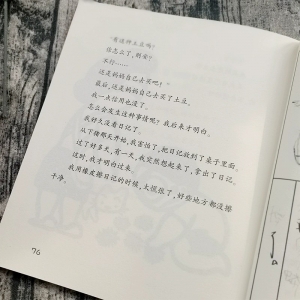 "有没种土豆吗?
你怎么了,明安?
不行……
还是妈妈自己去买吧!"
最后,还是妈妈自己去买了土豆。
我一点信用也没了。
怎么会发生这种事情呢?我后来才明白。
我好久没看日记了。
从下猪那天开始,我害怕了,把日记放到了桌子里面
过了好多天,有一天,我突然想起来了,拿出了日记。
这时,我才明白过来。
我用橡皮擦日记的时候,太慌张了,好些地方都没擦
干净。
76